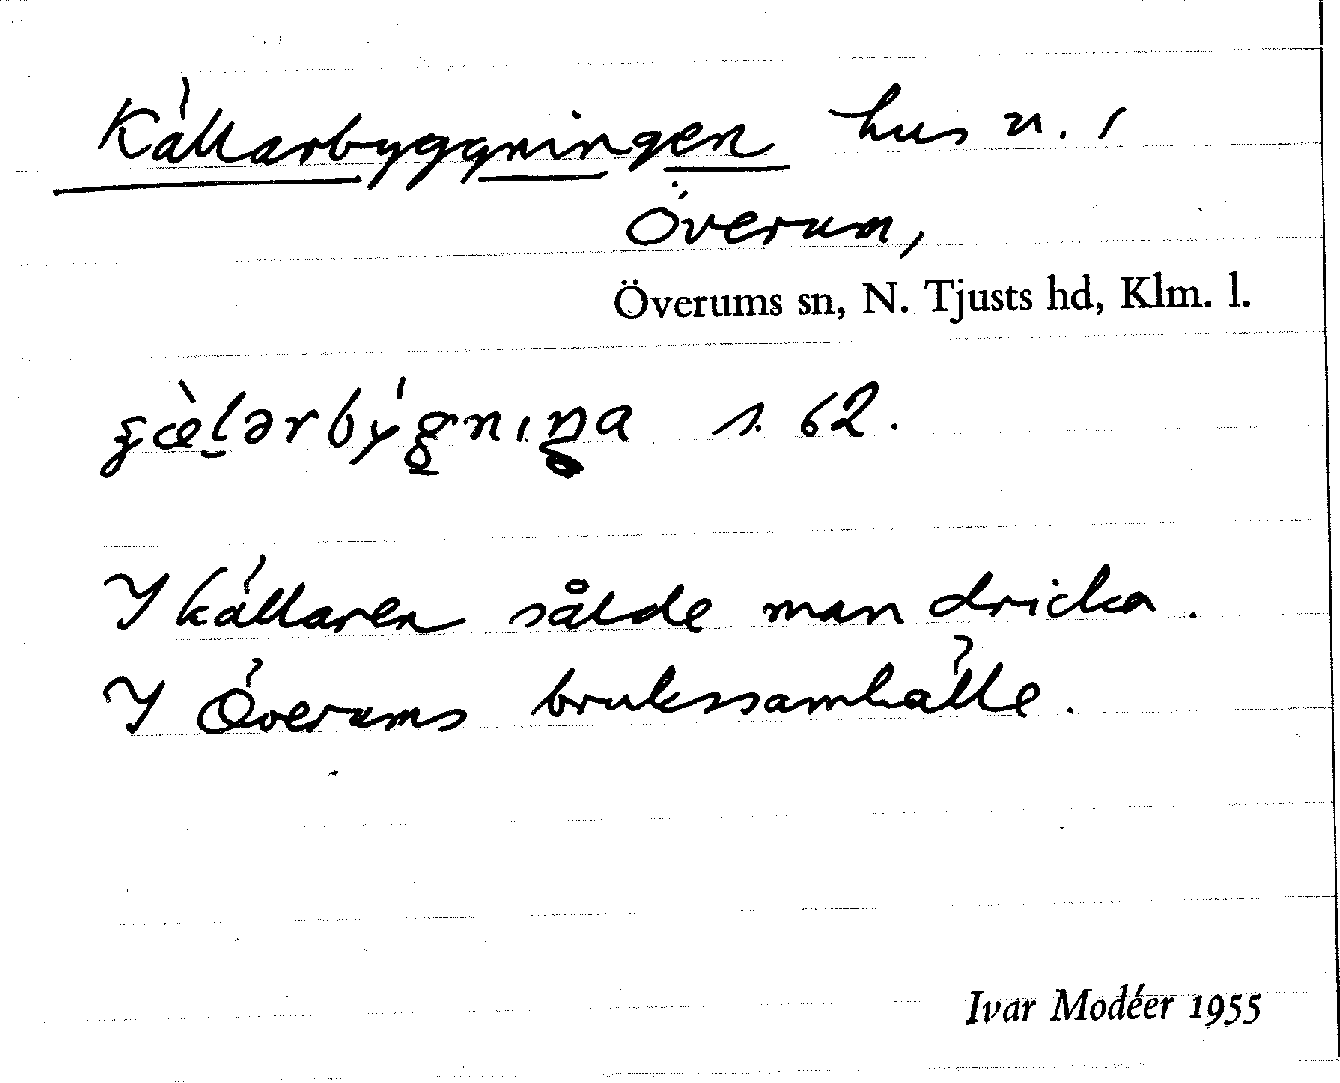 Källarbyggningen hus n. 1
Överum,
Överums sn, N. Tjusts hd, Klm. l.
s. 62.
I källaren sålde man dricka.
I Överums brukssamhälle.
Ivar Modéer 1955